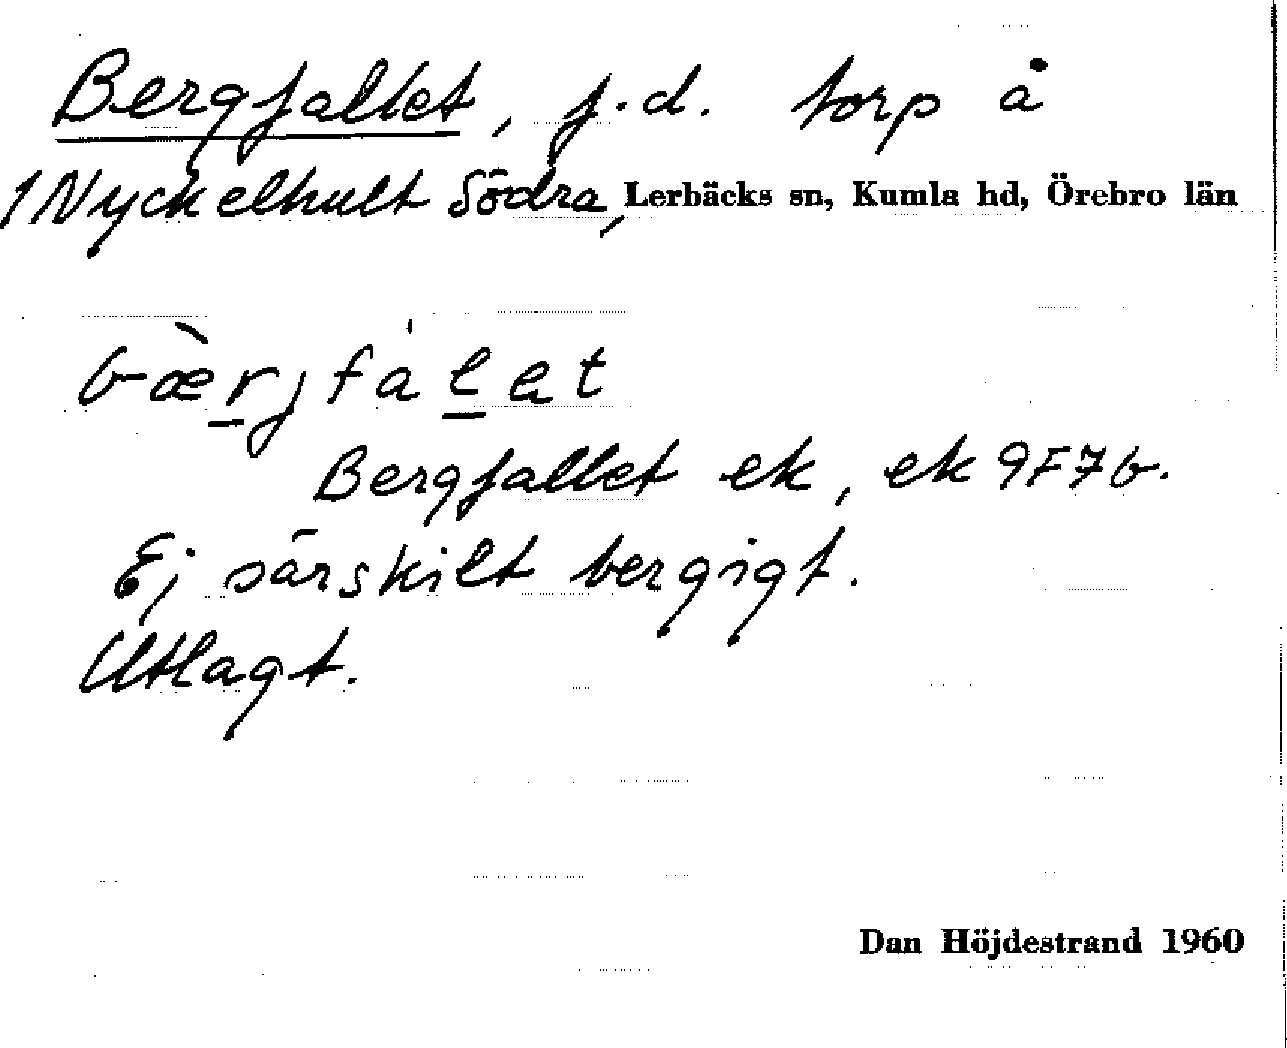 Bergfallet, f.d. torp å
1 Nyckelhult Södra, Lerbäcks sn, Kumla hd, Örebro län
bæ̀rjfálat
Bergfallet ek, ek 9F7b.
Ej särskilt bergigt.
Utlagt.
Dan Höjdestrand 1960